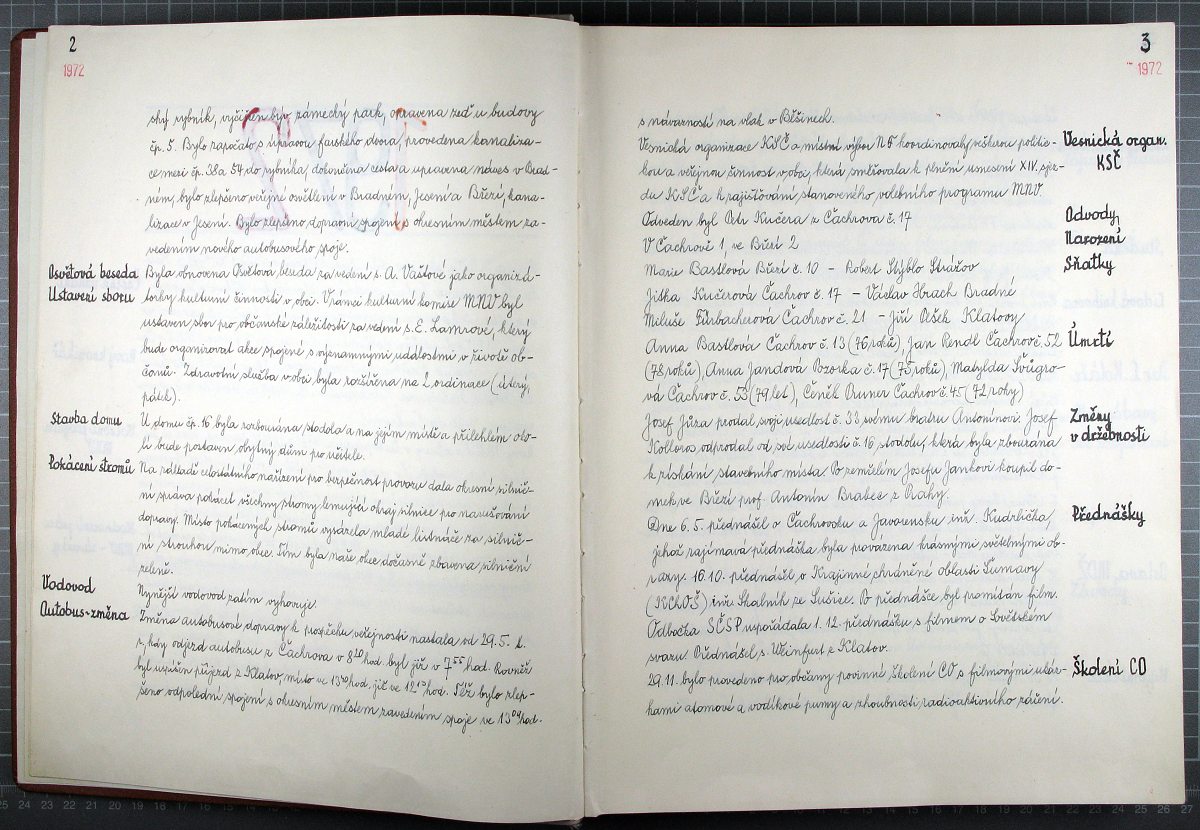 2
1972
ský rybník, vyčištěn býv. zámecký park, opravena zeď u budovy
čp. 5. Bylo započato s úpravou farského dvora, provedena kanaliza-
ce mezi čp. 38 a 54 do rybníka, dokončena cesta a upravena náves v Brad-
ném, bylo zlepšeno veřejné osvětlení v Bradném, Jesení a Březí, kana-
lizace v Jesení. Bylo zlepšeno dopravní spojení s okresním městem za-
vedením nového autobusového spoje.
Osvětová beseda Byla obnovena Osvětová beseda za vedení s. A. Vaštové jako organizá-
Ustavení sboru torky kulturní činnosti v obci. V rámci kulturní komise MNV byl
ustaven sbor pro občanské záležitosti za vedení s. E. Lamrové, který
bude organizovat akce spojené s významnými událostmi v životě ob-
čanů. Zdravotní služba v obci byla rozšířena na 2 ordinace (úterý,
pátek).
Stavba domu U domu čp. 16 byla rozbourána stodola a na jejím místě a přilehlém oko-
lí bude postaven obytný dům pro učitele.
Pokácení stromů Na základě celostátního nařízení pro bezpečnost provozu dala okresní silnič-
ní správa pokácet všechny stromy lemující okraj silnice pro narušování
dopravy. Místo pokácených stromů vysázela mladé listnáče za silnič-
ní strouhou mimo obce. Tím byla naše obec dočasně zbavena silniční
zeleně.
Vodovod Nynější vodovod zatím vyhovuje.
Autobus-změna Změna autobusové dopravy k prospěchu veřejnosti nastala od 29. 5. t.
r., kdy odjezd autobusu z Čachrova v 8²⁰ hod. byl již v 7⁵⁵ hod. Rovněž
byl uspíšen příjezd z Klatov, místo ve 13⁴⁰ hod. již ve 12¹⁵ hod. Též bylo zlep-
šeno odpolední spojení s okresním městem zavedením spoje ve 13⁰⁹ hod.
3
1972
s návazností na vlak v Běšinech.
Vesnická organ. KSČ
Vesnická organizace KSČ a místní výbor NF koordinovaly veškerou politic-
kou a veřejnou činnost v obci, která směřovala k plnění usnesení XIV. sjez-
du KSČ a k zajišťování stanoveného volebního programu MNV.
Odveden byl Petr Kučera z Čachrova č. 17 Odvody
V Čachrově 1 ve Březí 2 Narození
Marie Bastlová Březí č. 10 - Robert Stýblo Strážov Sňatky
Jitka Kučerová Čachrov č. 17 - Václav Hrach Bradné
Miluše Fürbacherová Čachrov č. 21 - Jiří Pešek Klatovy
Anna Bastlová Čachrov č. 13 (76 roků), Jan Rendl Čachrov č. 52 Úmrtí
(78 roků), Anna Jandová Pozorka č. 17 (75 roků), Matylda Svůgro-
vá Čachrov č. 53 (79 let), Čeněk Pruner Čachrov č. 45 (72 roky)
Josef Jůza prodal svoji usedlost č. 33 svému bratru Antonínovi. Josef Změny
Kolloros odprodal od své usedlosti č. 16 stodolu, která byla zbourána v držebnosti
k získání stavebního místa. Po zemřelém Josefu Jankovi koupil do-
mek ve Březí prof. Antonín Brabec z Prahy.
Dne 6. 5. přednášel o Čachrovsku a Javorensku inž. Kudrlička, Přednášky
jehož zajímavá přednáška byla provázena krásnými světelnými ob-
razy. 16. 10. přednášel o Krajinné chráněné oblasti Šumavy
(KCHOŠ) inž. Skalník ze Sušice. Po přednášce byl promítán film.
Odbočka SČSP uspořádala 1. 12. přednášku s filmem o Sovětském
svazu. Přednášel s. Weinfurt z Klatov.
29. 11. bylo provedeno pro občany povinné školení CO s filmovými ukáz- Školení CO
kami atomové a vodíkové pumy a zhoubnosti radioaktivního záření.